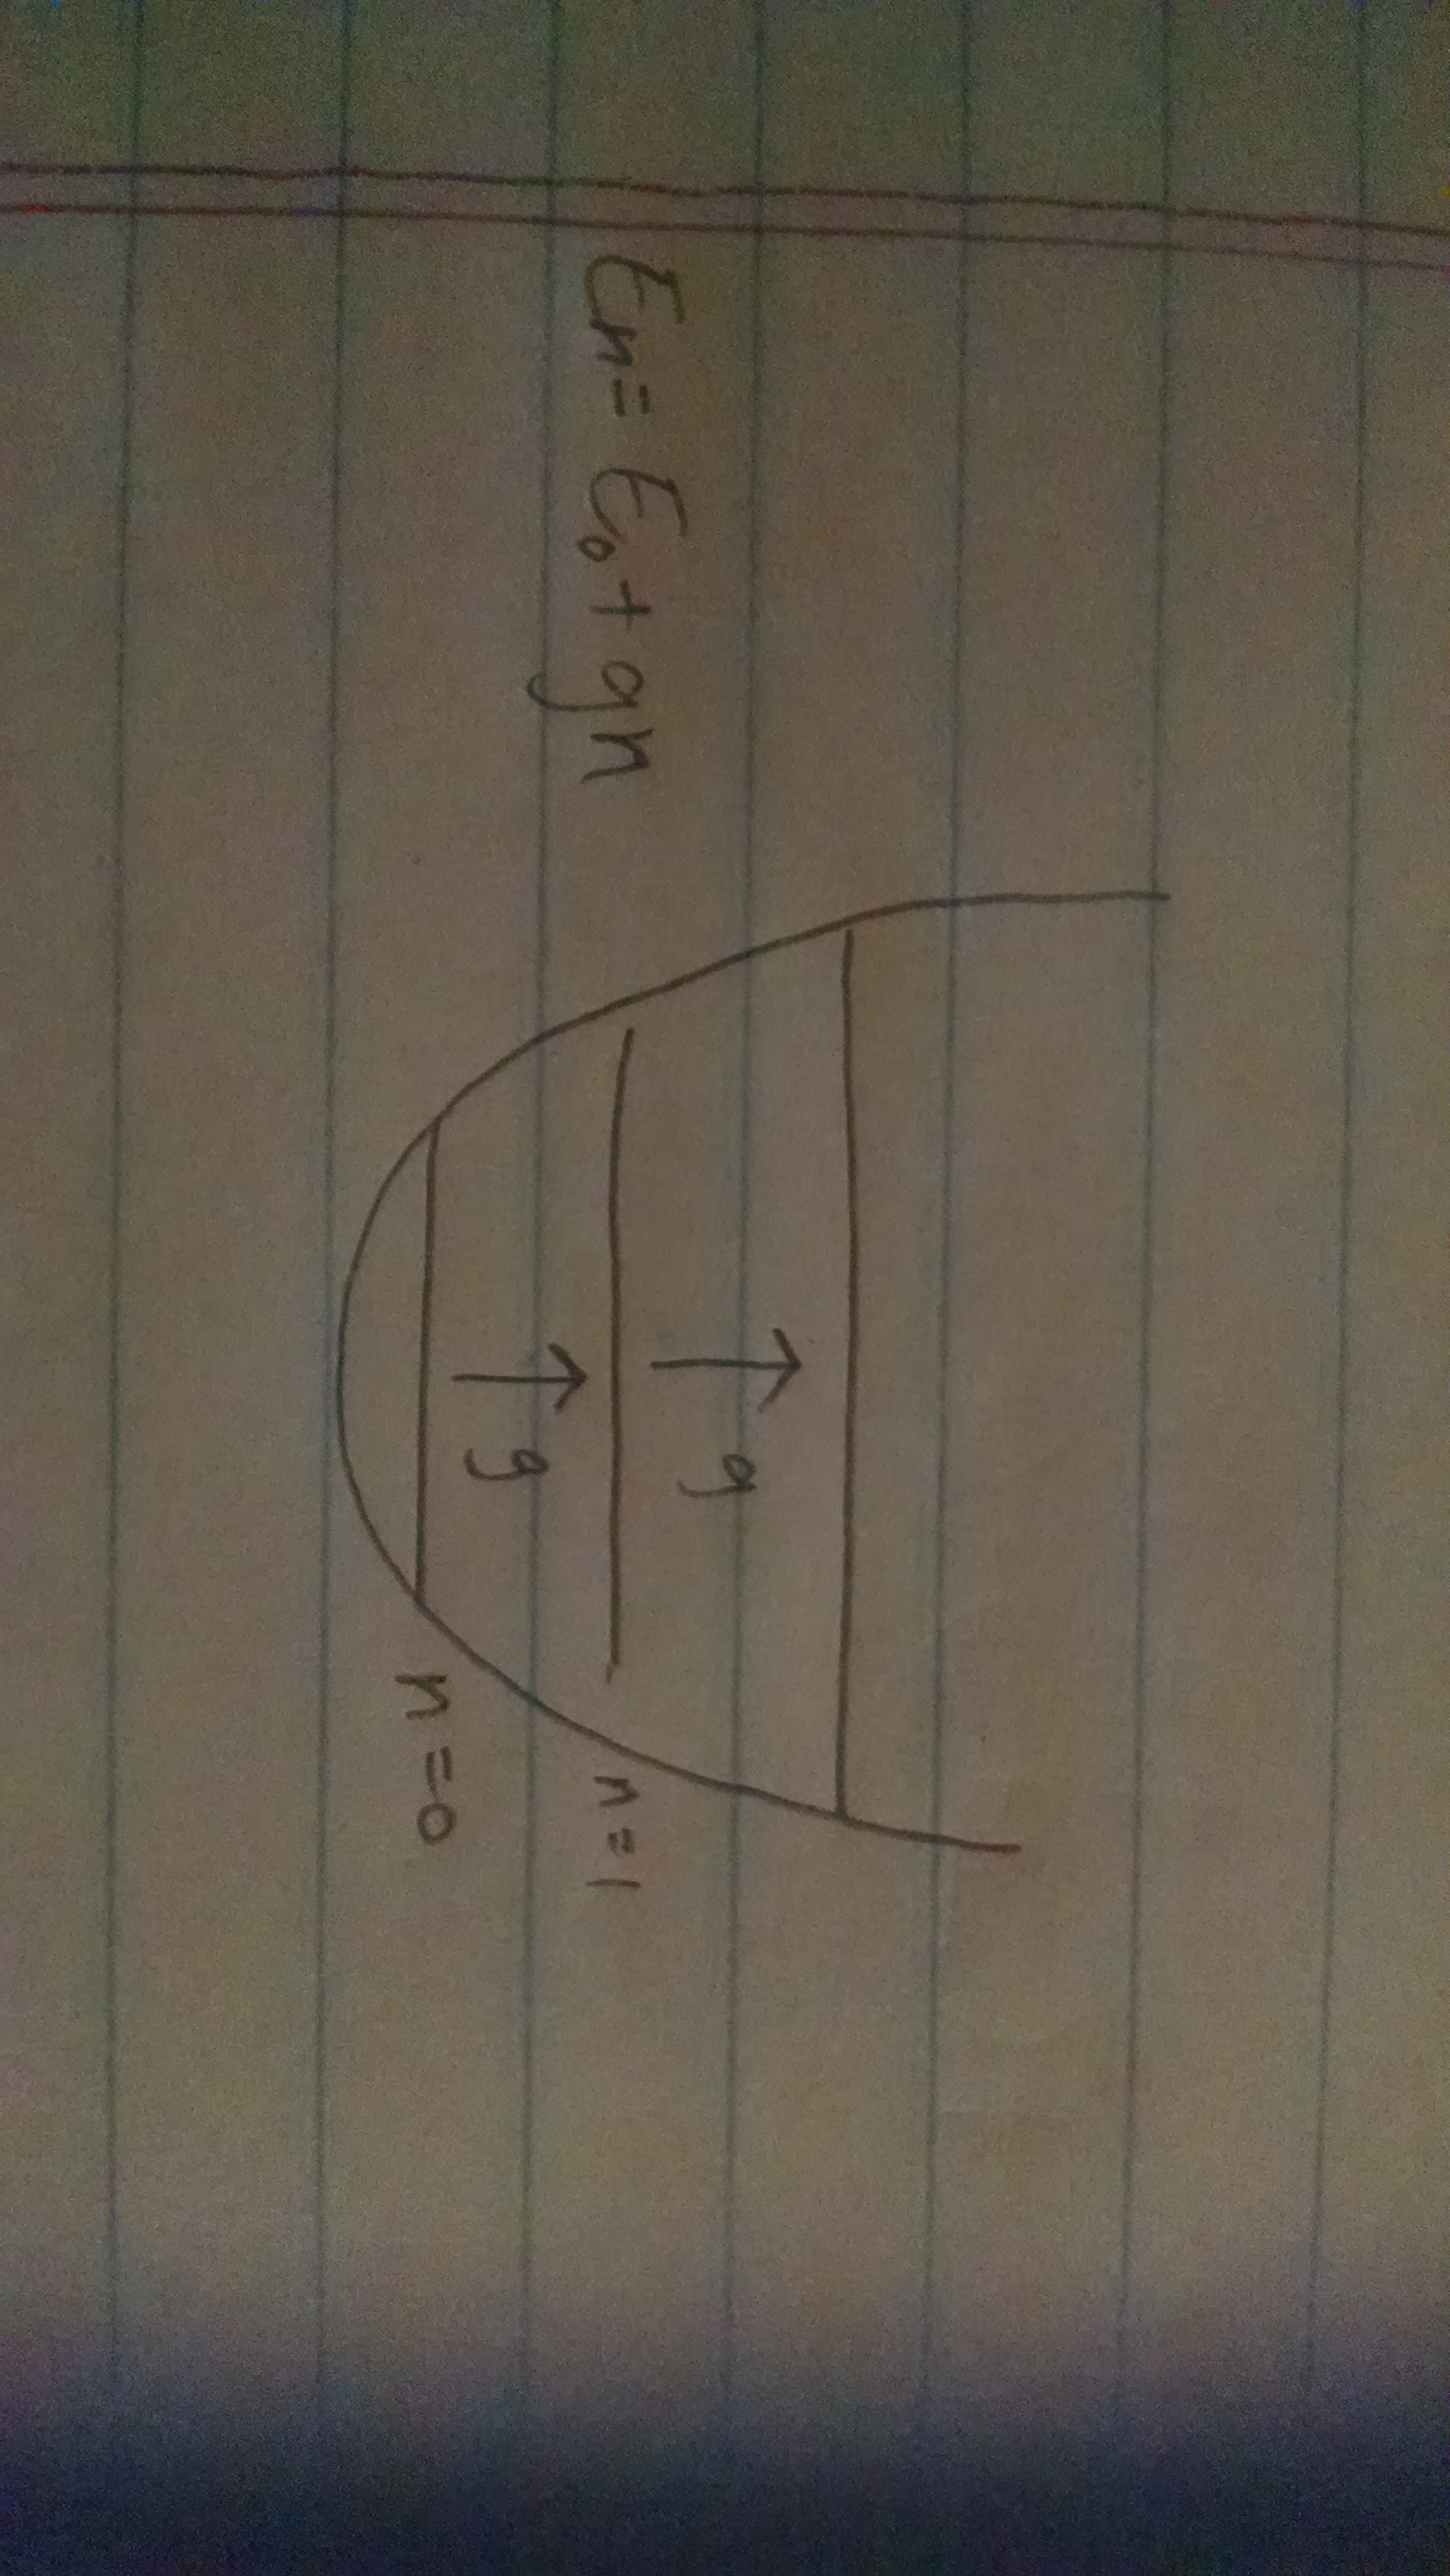 En = E₀ + gn
g
g
n = 1
n = 0